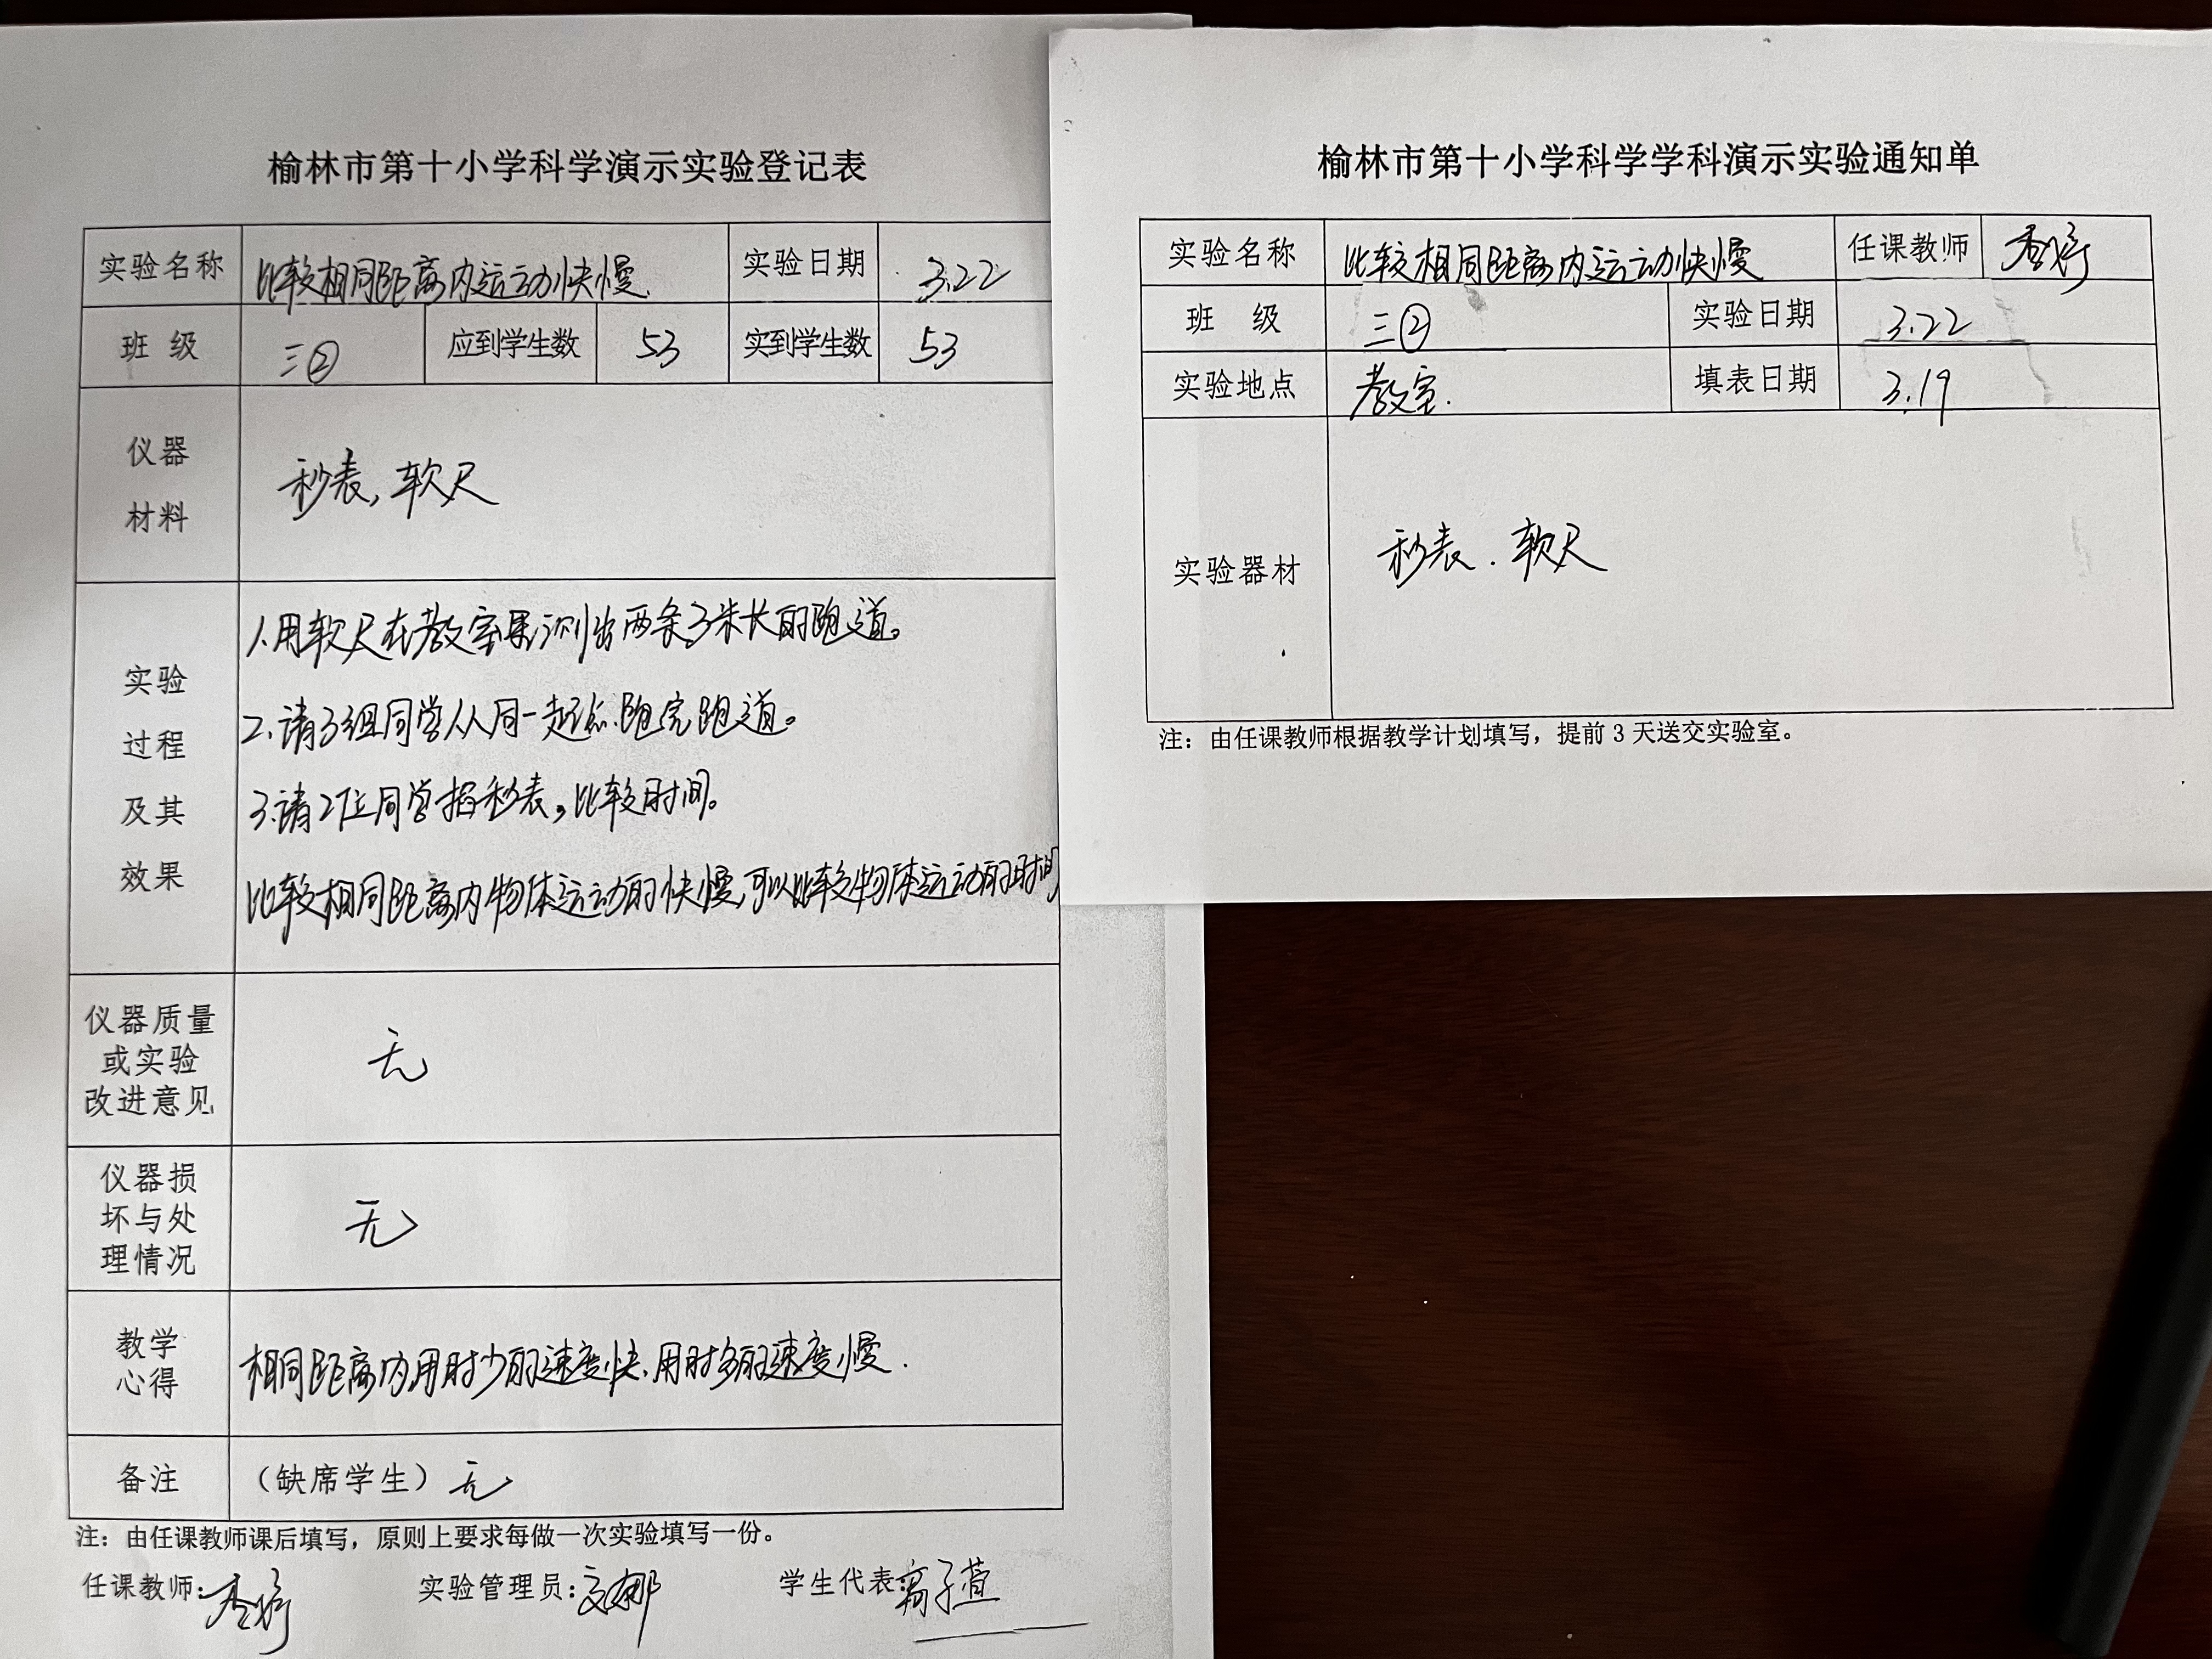 榆林市第十小学科学演示实验登记表
实验名称 比较相同距离内运动快慢. 实验日期 3.22
班 级 三② 应到学生数 53 实到学生数 53
仪器
材料
秒表,软尺
实验
过程
及其
效果
1.用软尺在教室里测出两条3米长的跑道。
2.请3组同学从同一起点.跑完跑道。
3.请2位同学掐秒表,比较时间。
比较相同距离内物体运动的快慢,可以比较物体运动的时间
仪器质量
或实验
改进意见
无
仪器损
坏与处
理情况
无
教学
心得
相同距离内,用时少的速度快.用时多的速度慢.
备注 (缺席学生)无
注:由任课教师课后填写,原则上要求每做一次实验填写一份。
任课教师: 实验管理员: 学生代表:高子萱
榆林市第十小学科学学科演示实验通知单
实验名称 比较相同距离内运动快慢 任课教师
班 级 三② 实验日期 3.22
实验地点 教室. 填表日期 3.19
实验器材 秒表.软尺
注:由任课教师根据教学计划填写,提前3天送交实验室。